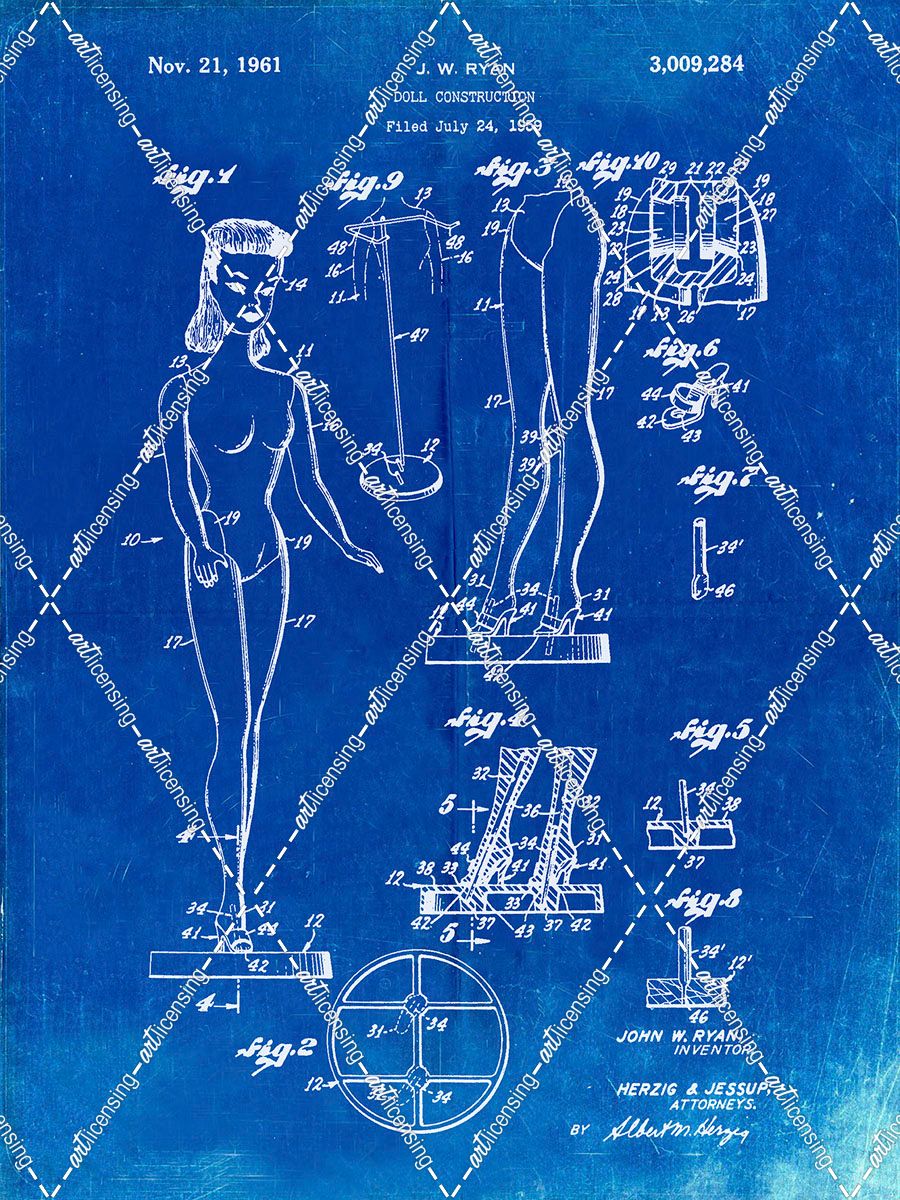 Nov. 21, 1961
J. W. RYAN
3,009,284
DOLL CONSTRUCTION
Filed July 24, 1959
Fig.1
Fig.9
Fig.3
Fig.10
13
48
48
16
16
11
47
34
12
14
13
11
16
19
19
10
17
17
34
31
41
44
42
12
4
4
13
19
19
11
17
17
39
39
31
34
31
44
41
41
42
29 21 22 29
19
19
18
18
23
27
22
23
24
24
28
17 13 26 17
Fig.6
44
41
42
43
Fig.7
34'
46
Fig.4
5
32
32
36
34
31
44
41
41
38
33
12
33
42
37
43
37
42
5
Fig.5
34
12
38
37
Fig.8
34'
12'
46
Fig.2
31
34
12
32
34
JOHN W. RYAN,
INVENTOR
HERZIG & JESSUP,
ATTORNEYS.
BY Albert M. Herzig
artlicensing